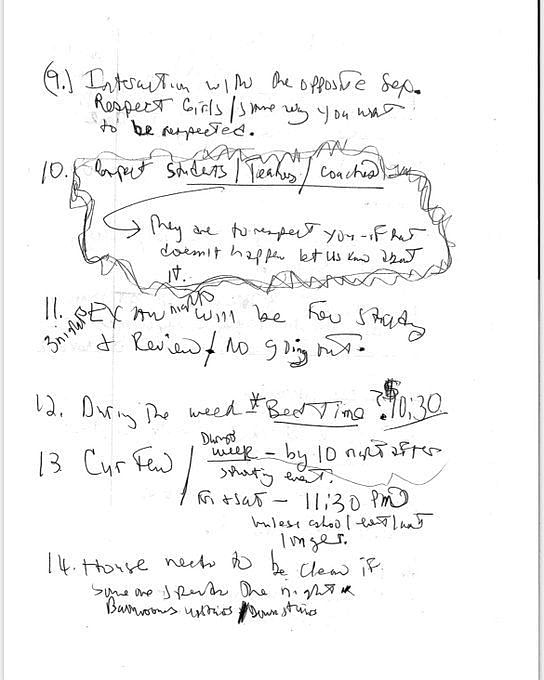 (9.) Interaction with the opposite sex.
Respect Girls / same way you want
to be respected.
10. Respect Students / Teachers / coaches
They are to respect you - if that
doesn't happen let us know about
it.
11. EXAM nights will be for study
3 nights
& Review / NO going out.
12. During the week * Bed Time 10:30
13 Curfew / During week - by 10 night after
sporting event.
Fri & Sat - 11:30 PM
unless school event last
longer.
14. House needs to be clean if
someone spends the night
Bathrooms upstairs / Downstairs